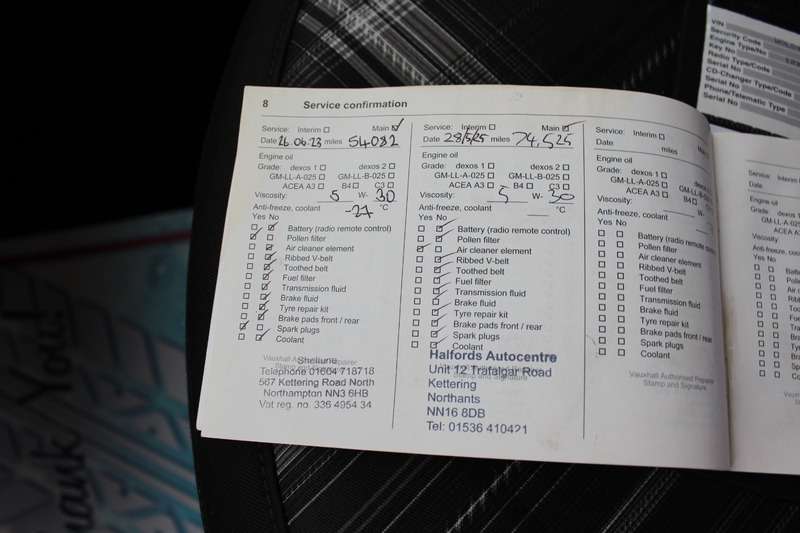 8 Service confirmation
Service: Interim ☐ Main ☑
Date 26.06.23 miles 54082
Engine oil
Grade: dexos 1 ☐ dexos 2 ☐
GM-LL-A-025 ☐ GM-LL-B-025 ☐
ACEA A3 ☐ B4 ☐ C3 ☐
Viscosity: 5 W- 30
Anti-freeze, coolant -27 °C
Yes No
Battery (radio remote control)
Pollen filter
Air cleaner element
Ribbed V-belt
Toothed belt
Fuel filter
Transmission fluid
Brake fluid
Tyre repair kit
Brake pads front / rear
Spark plugs
Coolant
Vauxhall Authorised Repairer
Stamp and Signature
Shellune
Telephone 01604 718718
567 Kettering Road North
Northampton NN3 6HB
Vat reg. no. 336 4954 34
Service: Interim ☐ Main ☑
Date 28/5/25 miles 74,525
Engine oil
Grade: dexos 1 ☐ dexos 2 ☐
GM-LL-A-025 ☐ GM-LL-B-025 ☐
ACEA A3 ☐ B4 ☐ C3 ☐
Viscosity: 5 W- 30
Anti-freeze, coolant °C
Yes No
Battery (radio remote control)
Pollen filter
Air cleaner element
Ribbed V-belt
Toothed belt
Fuel filter
Transmission fluid
Brake fluid
Tyre repair kit
Brake pads front / rear
Spark plugs
Coolant
Halfords Autocentre
Unit 12 Trafalgar Road
Stamp and Signature
Kettering
Northants
NN16 8DB
Tel: 01536 410421
Service: Interim ☐
Date miles
Engine oil
Grade: dexos 1 ☐
GM-LL-A-025 ☐ GM-LL-B-025
ACEA A3 ☐ B4 ☐
Viscosity: W-
Anti-freeze, coolant
Yes No
Battery (radio remote control)
Pollen filter
Air cleaner element
Ribbed V-belt
Toothed belt
Fuel filter
Transmission fluid
Brake fluid
Tyre repair kit
Brake pads front / rear
Spark plugs
Coolant
Vauxhall Authorised Repairer
Stamp and Signature
Service: Interim
Date
Engine oil
Grade: dexos 1
GM-LL-A-025
ACEA A3
Viscosity:
Anti-freeze, coolant
Yes No
VIN
Security Code
Engine Type/No
Key No
Radio Type/Code
Serial No
CD-Changer Type/Code
Serial No
Phone/Telematic Type
Serial No
Thank You!